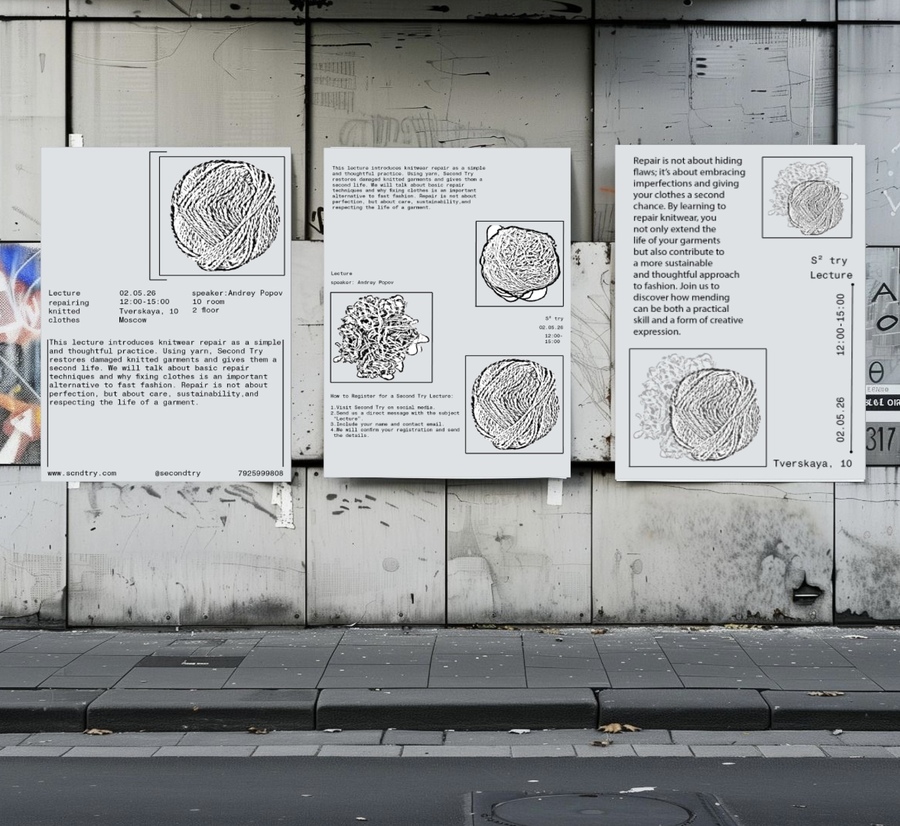 Lecture
repairing
knitted
clothes
02.05.26
12:00-15:00
Tverskaya, 10
Moscow
speaker:Andrey Popov
10 room
2 floor
This lecture introduces knitwear repair as a simple
and thoughtful practice. Using yarn, Second Try
restores damaged knitted garments and gives them a
second life. We will talk about basic repair
techniques and why fixing clothes is an important
alternative to fast fashion. Repair is not about
perfection, but about care, sustainability,and
respecting the life of a garment.
www.scndtry.com
@secondtry
7925999808
This lecture introduces knitwear repair as a simple
and thoughtful practice. Using yarn, Second Try
restores damaged knitted garments and gives them a
second life. We will talk about basic repair
techniques and why fixing clothes is an important
alternative to fast fashion. Repair is not about
perfection, but about care, sustainability,and
respecting the life of a garment.
Lecture
speaker: Andrey Popov
S² try
02.05.26
12:00-
15:00
How to Register for a Second Try Lecture:
1.Visit Second Try on social media.
2.Send us a direct message with the subject
"Lecture".
3.Include your name and contact email.
4.We will confirm your registration and send
the details.
Repair is not about hiding
flaws; it's about embracing
imperfections and giving
your clothes a second
chance. By learning to
repair knitwear, you
not only extend the
life of your garments
but also contribute to
a more sustainable
and thoughtful approach
to fashion. Join us to
discover how mending
can be both a practical
skill and a form of creative
expression.
S² try
Lecture
12:00-15:00
02.05.26
Tverskaya, 10
317